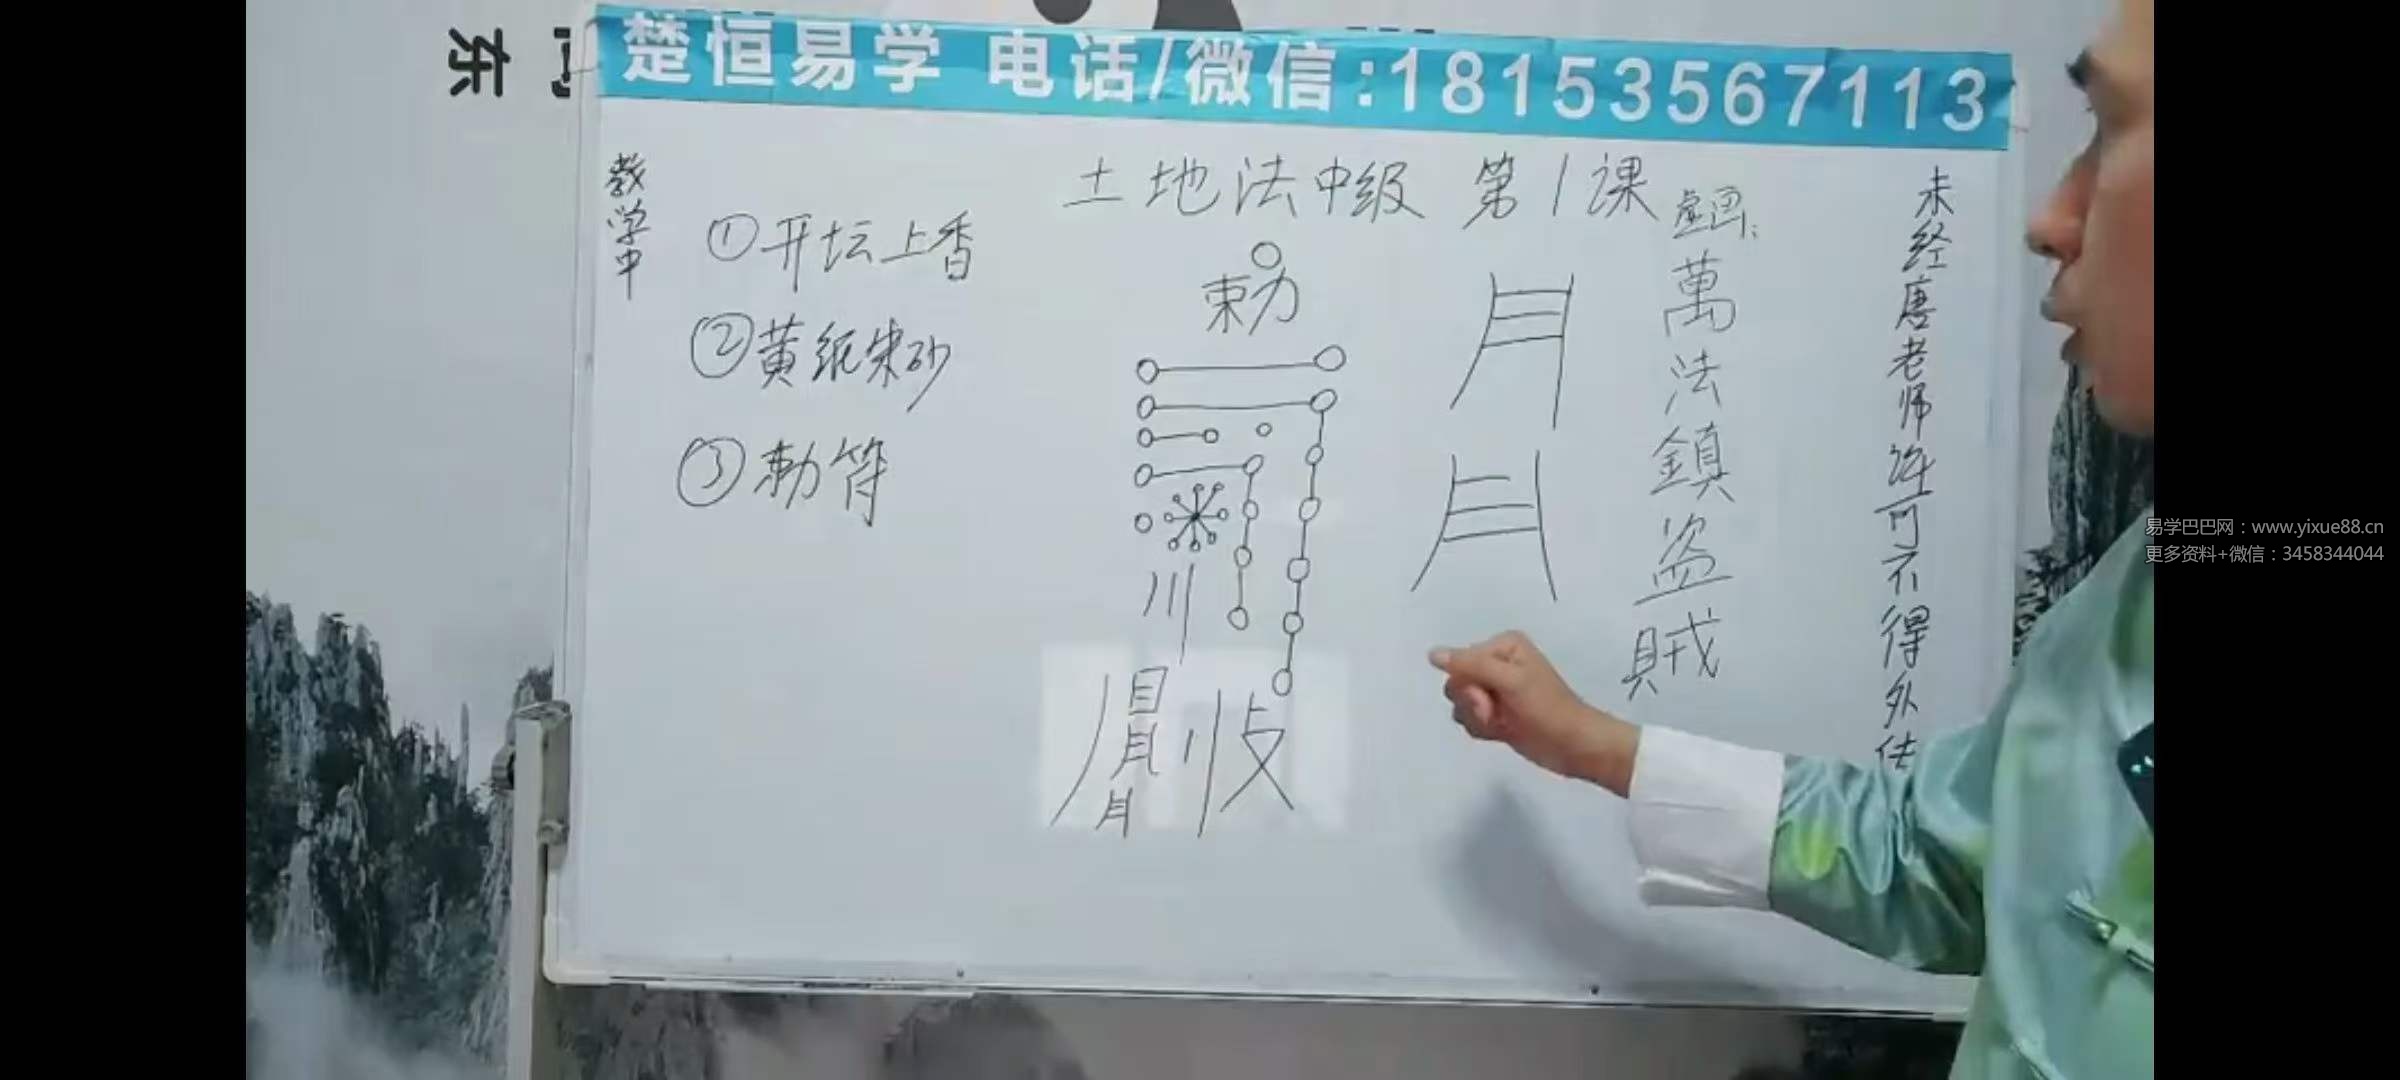 楚恒易学 电话/微信:18153567113
东
教学中
土地法中级 第1课
①开坛上香
②黄纸朱砂
③勅符
勅
虚画:
萬法鎮盗賊
未经唐老师许可不得外传
易学巴巴网：www.yixue88.cn
更多资料+微信：3458344044